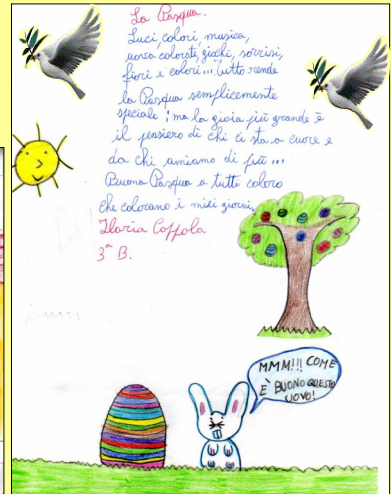 La Pasqua.
Luci, colori, musica,
uova colorate, giochi, sorrisi,
fiori e colori... Tutto rende
la Pasqua semplicemente
speciale; ma la gioia più grande è
il pensiero di chi ci sta a cuore e
da chi amiamo di più...
Buona Pasqua a tutti coloro
che colorano i miei giorni.
Ilaria Coppola
3ª B.
MMM!!! COME
È BUONO QUESTO
UOVO!